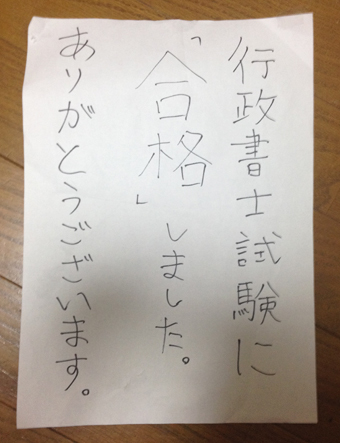 行政書士試験に
「合格」しました。
ありがとうございます。